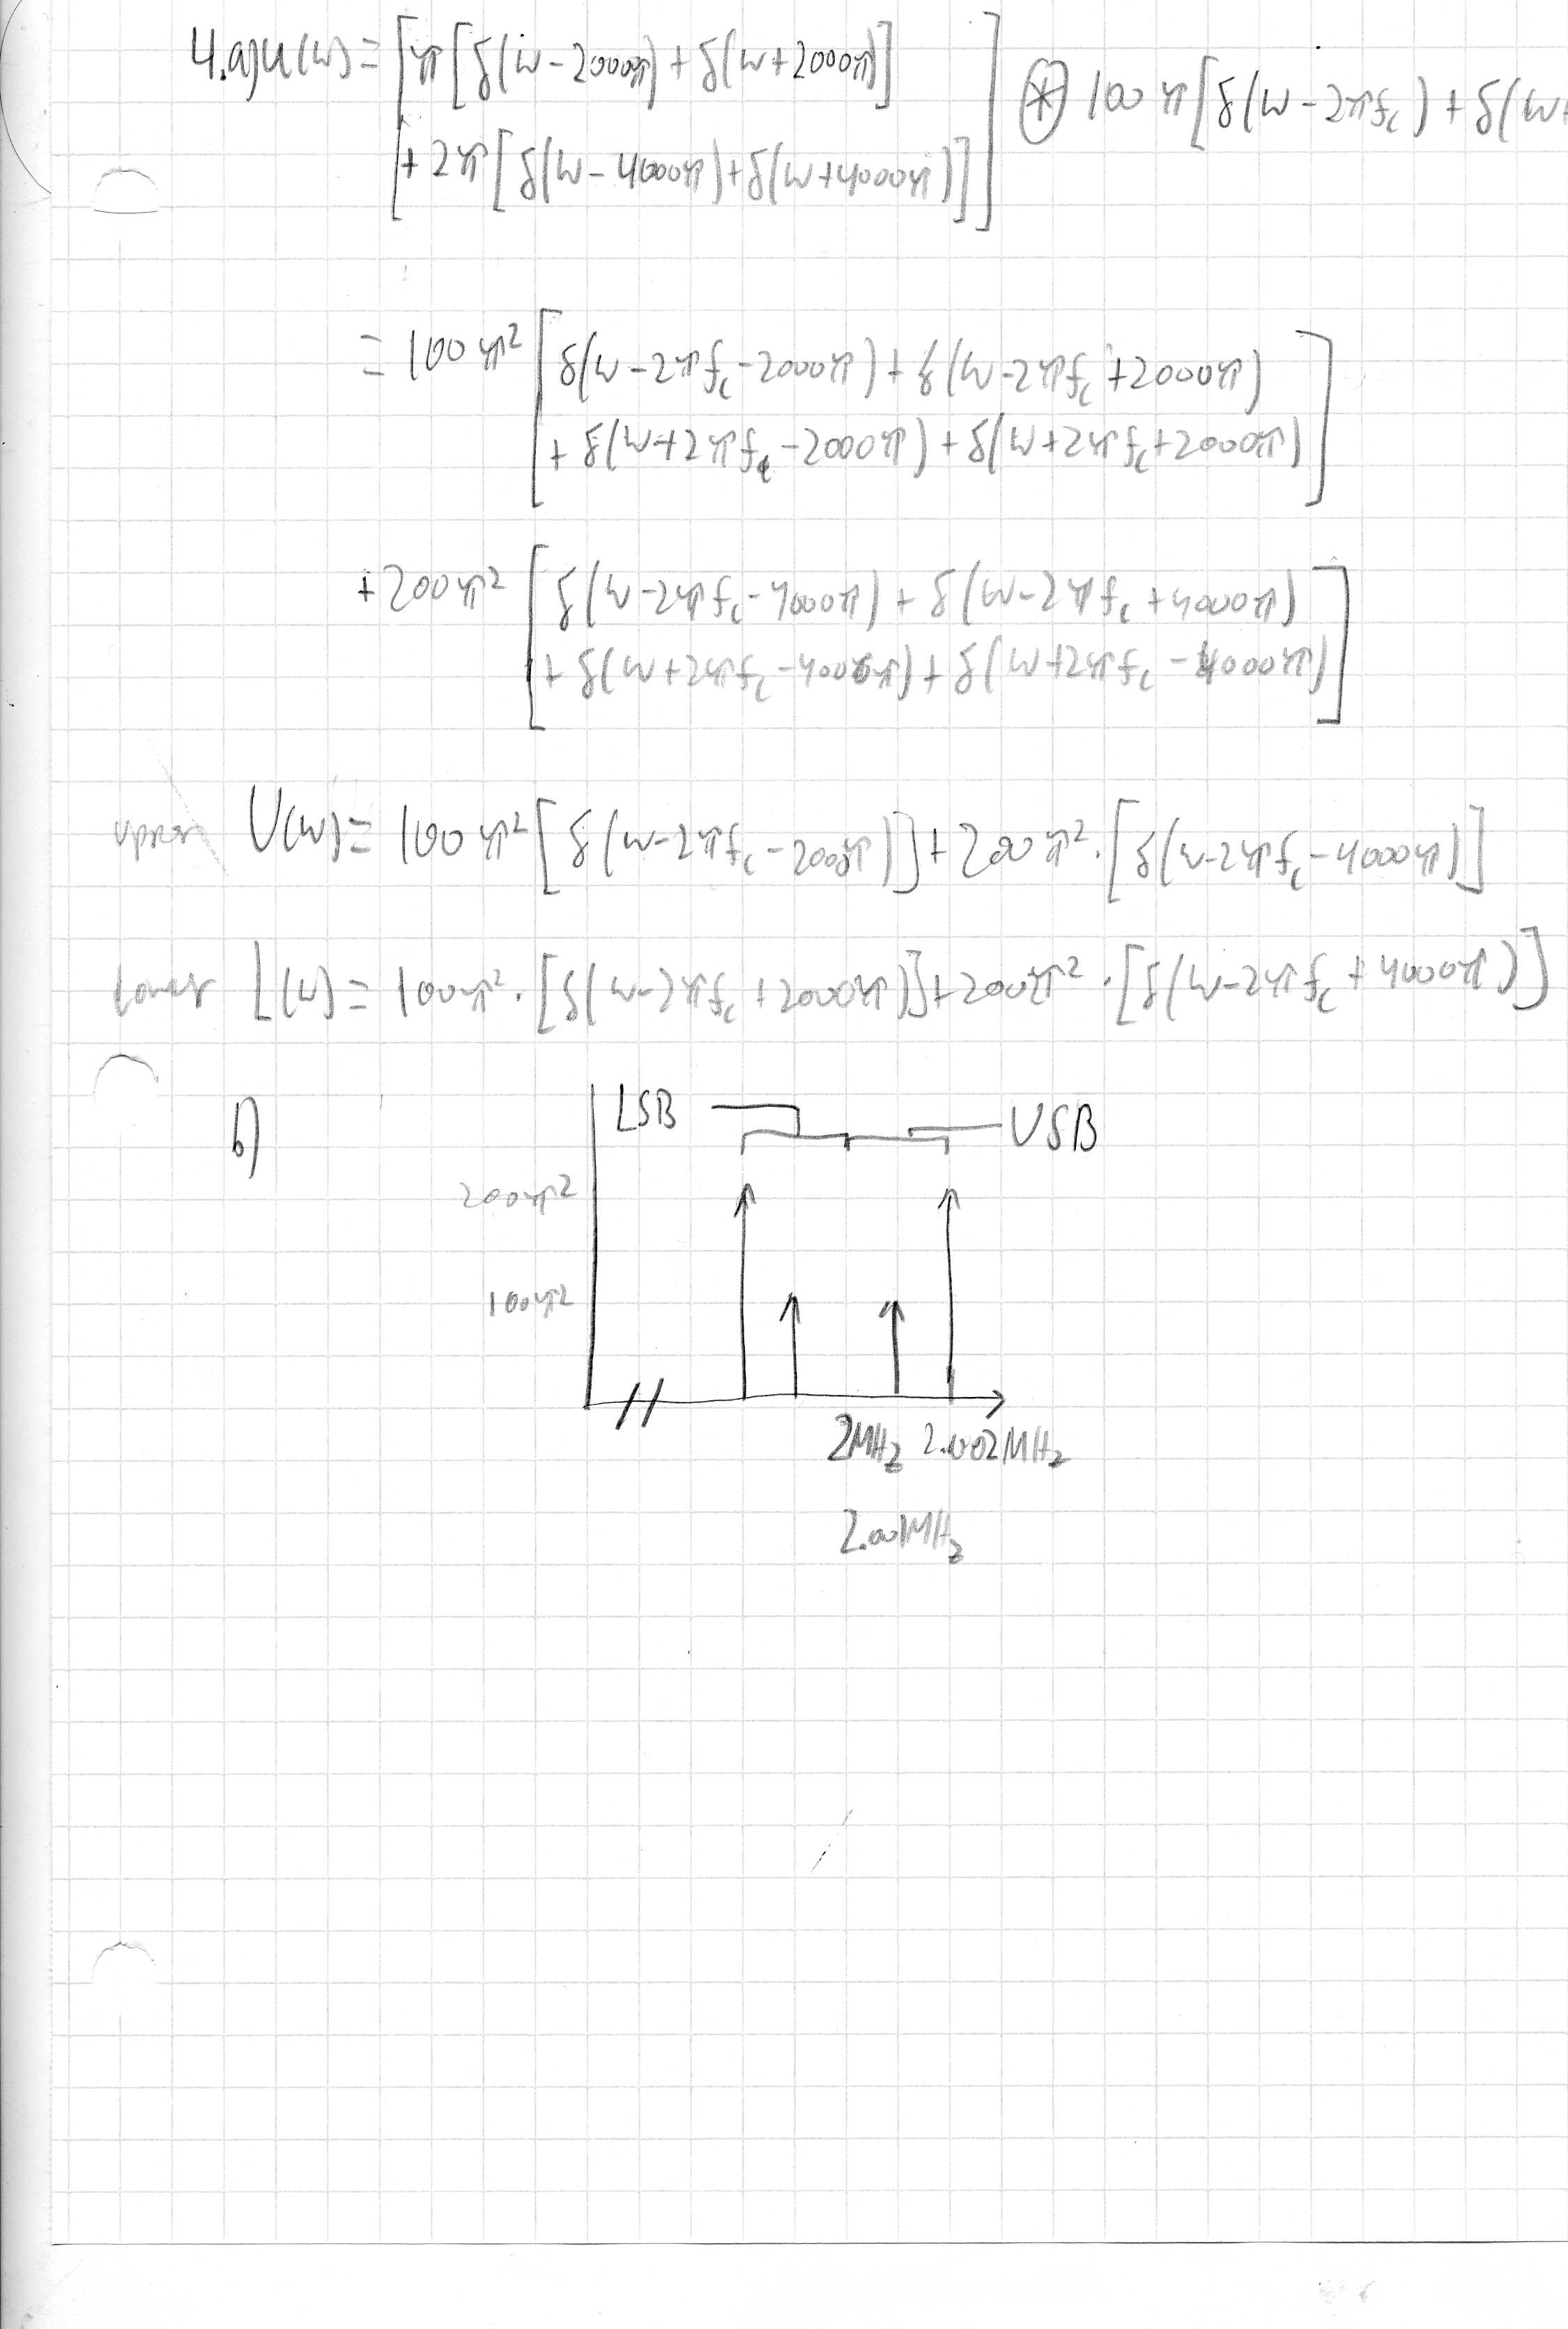 4.a) u(w) = [π[δ(w-2000π)+δ(w+2000π)]
+2π[δ(w-4000π)+δ(w+4000π)]] ⊛ 100π[δ(w-2πfc)+δ(w+
= 100π² [δ(w-2πfc-2000π)+δ(w-2πfc+2000π)
+δ(w+2πfc-2000π)+δ(w+2πfc+2000π)]
+200π² [δ(w-2πfc-4000π)+δ(w-2πfc+4000π)
+δ(w+2πfc-4000π)+δ(w+2πfc-4000π)]
U(w)= 100π²[δ(w-2πfc-2000π)]+200π²·[δ(w-2πfc-4000π)]
lower L(w)= 100π²·[δ(w-2πfc+2000π)]+200π²·[δ(w-2πfc+4000π)]
b)
LSB USB
200π²
100π²
2MHz 2.002MHz
2.001MHz